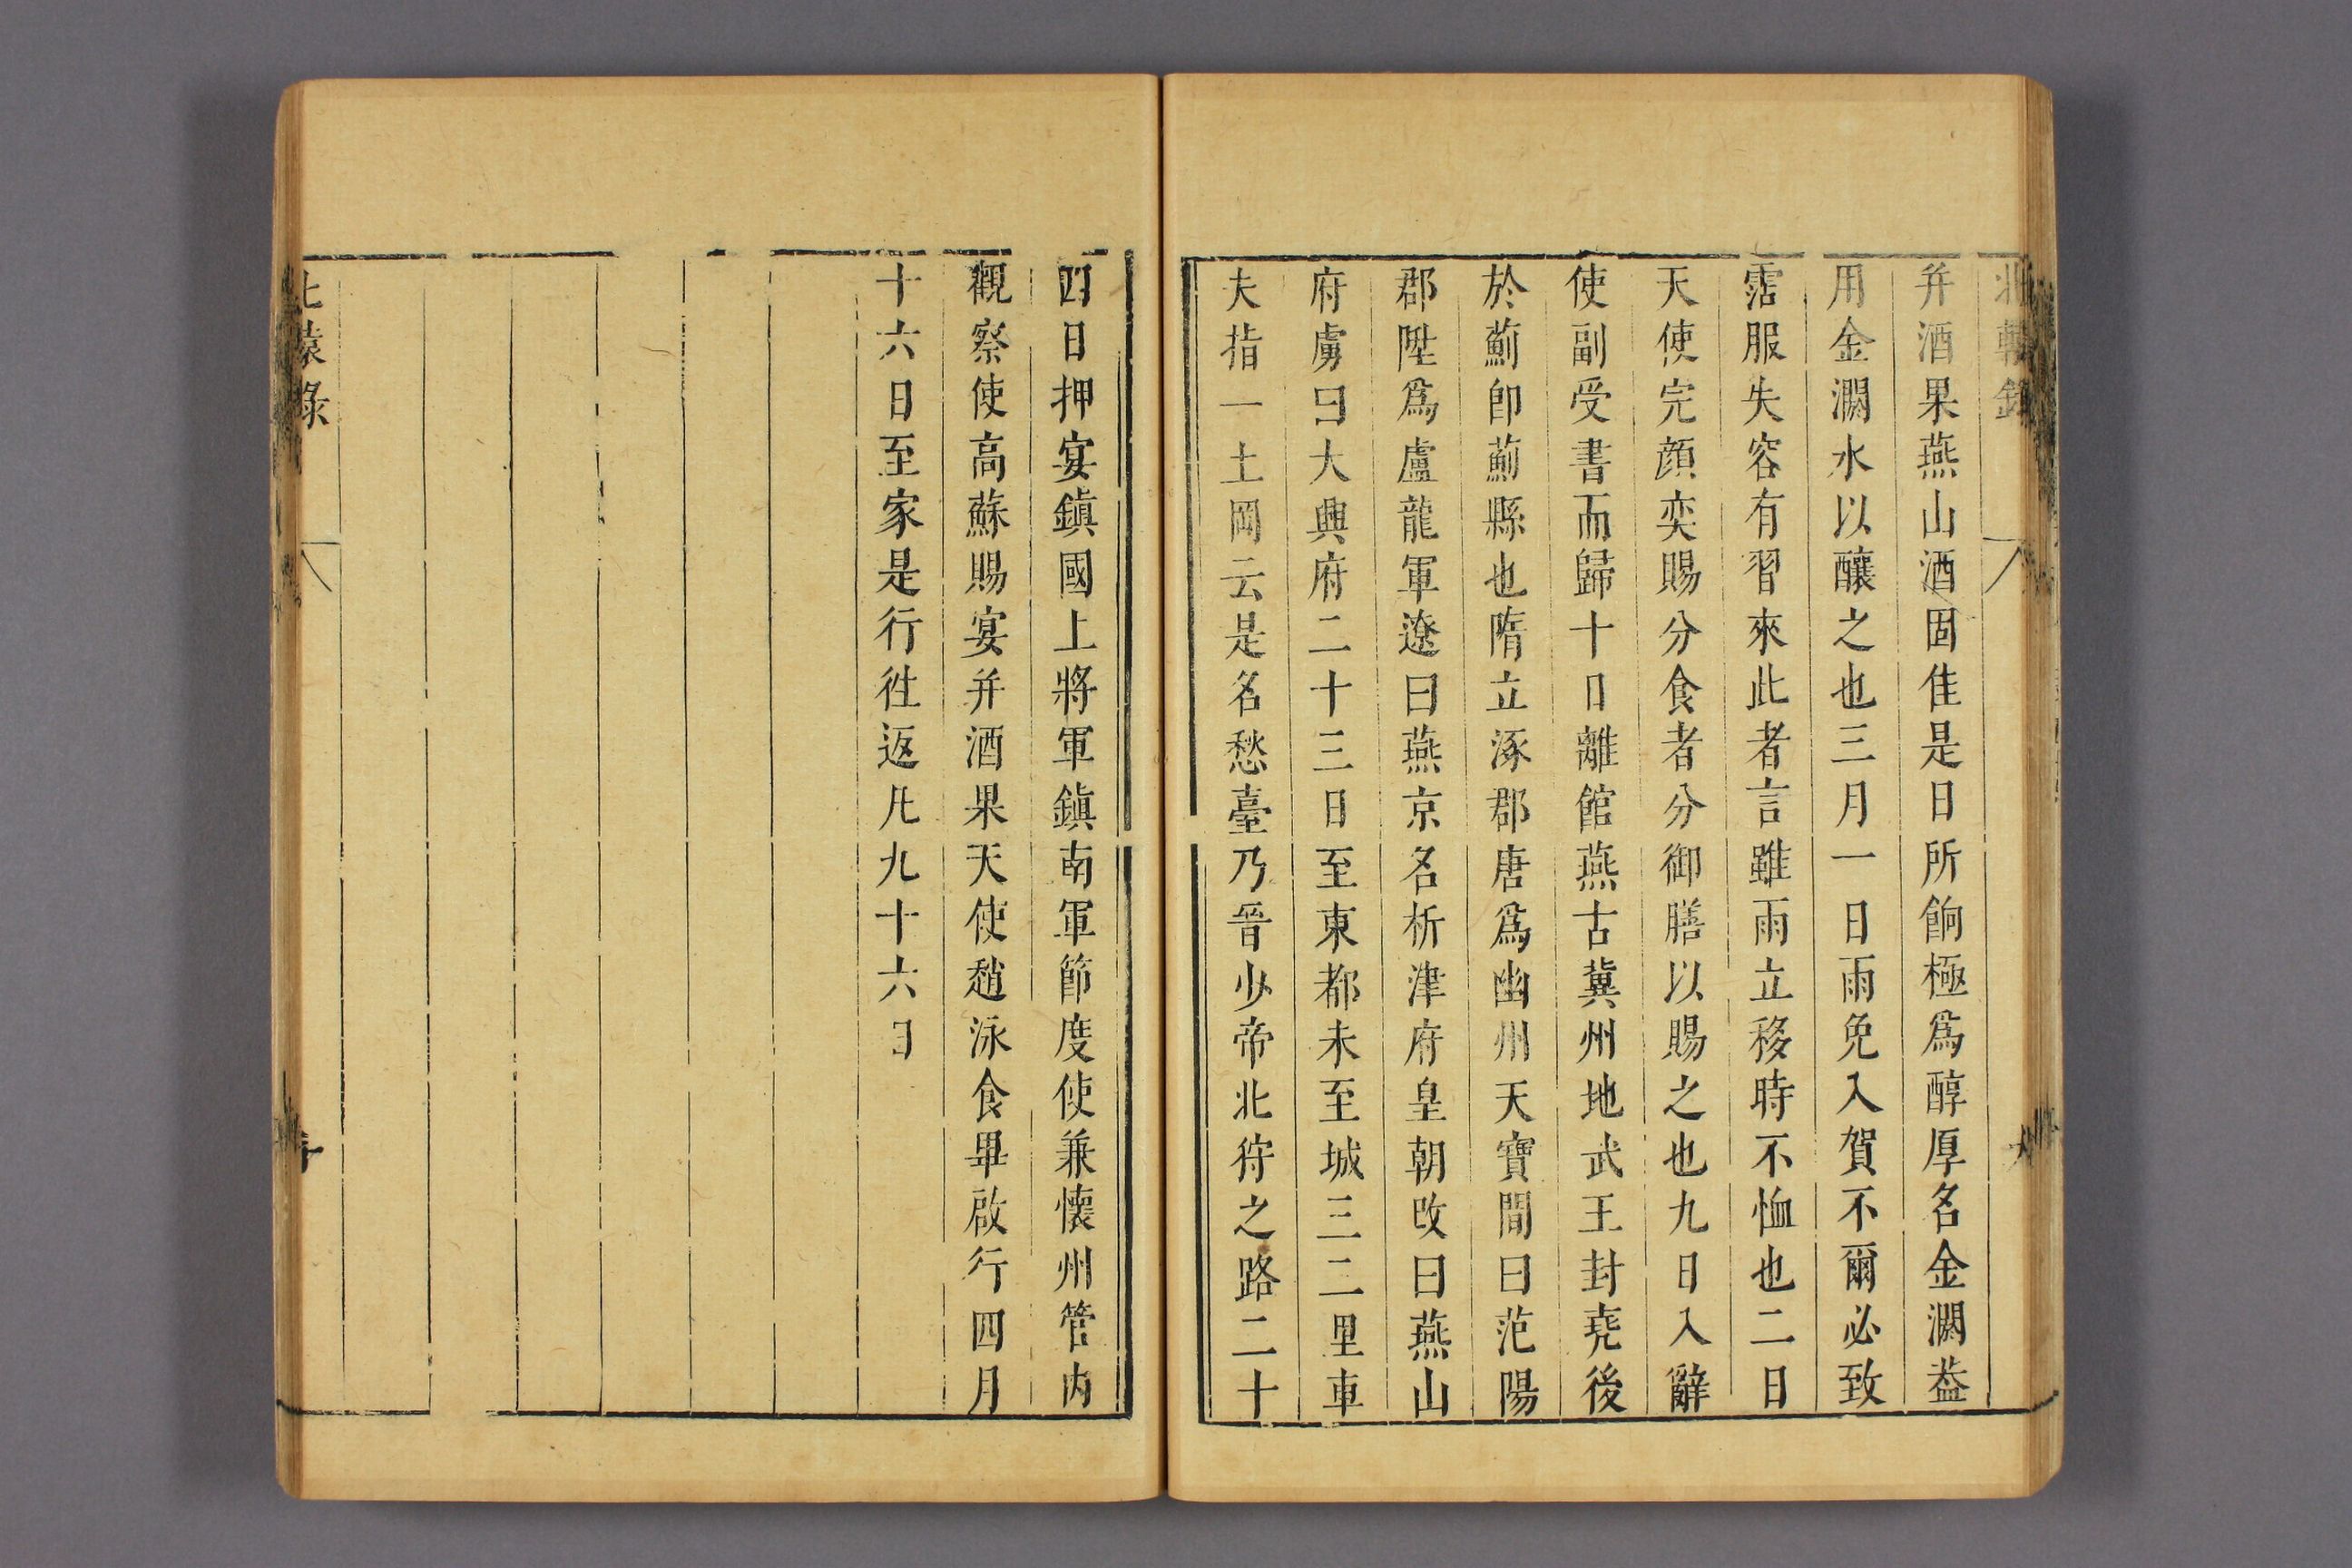 北轅錄
幷酒果燕山酒固佳是日所餉極爲醇厚名金瀾葢
用金瀾水以釀之也三月一日雨免入賀不爾必致
霑服失容有習來此者言雖雨立移時不恤也二日
天使完顔奕賜分食者分御膳以賜之也九日入辭
使副受書而歸十日離館燕古冀州地武王封堯後
於薊卽薊縣也隋立涿郡唐爲幽州天寶間曰范陽
郡陞爲盧龍軍遼曰燕京名析津府皇朝改曰燕山
府虜曰大興府二十三日至東都未至城三二里車
夫指一土岡云是名愁臺乃晉少帝北狩之路二十
四日押宴鎭國上將軍鎭南軍節度使兼懷州管內
觀察使高蘇賜宴幷酒果天使趙泳食畢啟行四月
十六日至家是行徃返凡九十六日
北轅錄